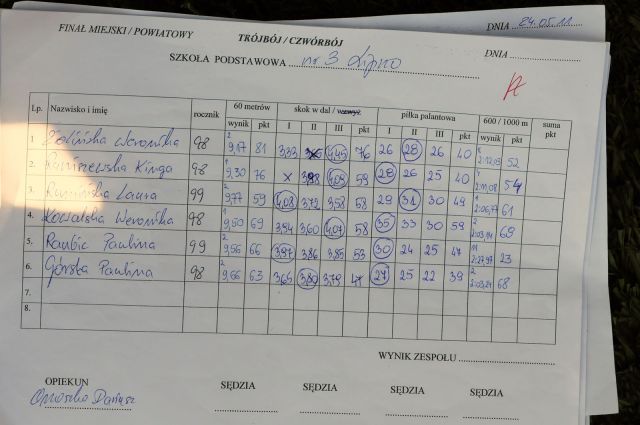 DNIA 24.05.11
FINAŁ MIEJSKI / POWIATOWY TRÓJBÓJ / CZWÓRBÓJ DNIA
SZKOŁA PODSTAWOWA nr 3 Lipno
Lp. Nazwisko i imię rocznik 60 metrów skok w dal / wzwyż piłka palantowa 600 / 1000 m suma pkt
wynik pkt I II III pkt I II III pkt wynik pkt
1 Zielińska Weronika 98 9,17 81 333 4,45 76 26 28 26 40 52
2. Kinga 98 9,30 76 x 398 4,09 59 28 26 25 40 2:11,08 54
3. Laura 99 9,77 59 4,08 3,72 3,58 58 29 31 30 49 2:06,77 61
4. Kowalska Weronika 98 9,50 69 3,94 3,60 4,07 58 35 33 30 59 69
5. Paulina 99 9,56 66 3,97 3,86 3,85 53 30 24 25 47 2:27,97 23
6. Górska Paulina 98 9,66 63 3,65 3,80 3,79 27 25 22 39 68
7.
8.
WYNIK ZESPOŁU
OPIEKUN SĘDZIA SĘDZIA SĘDZIA SĘDZIA
Dariusz